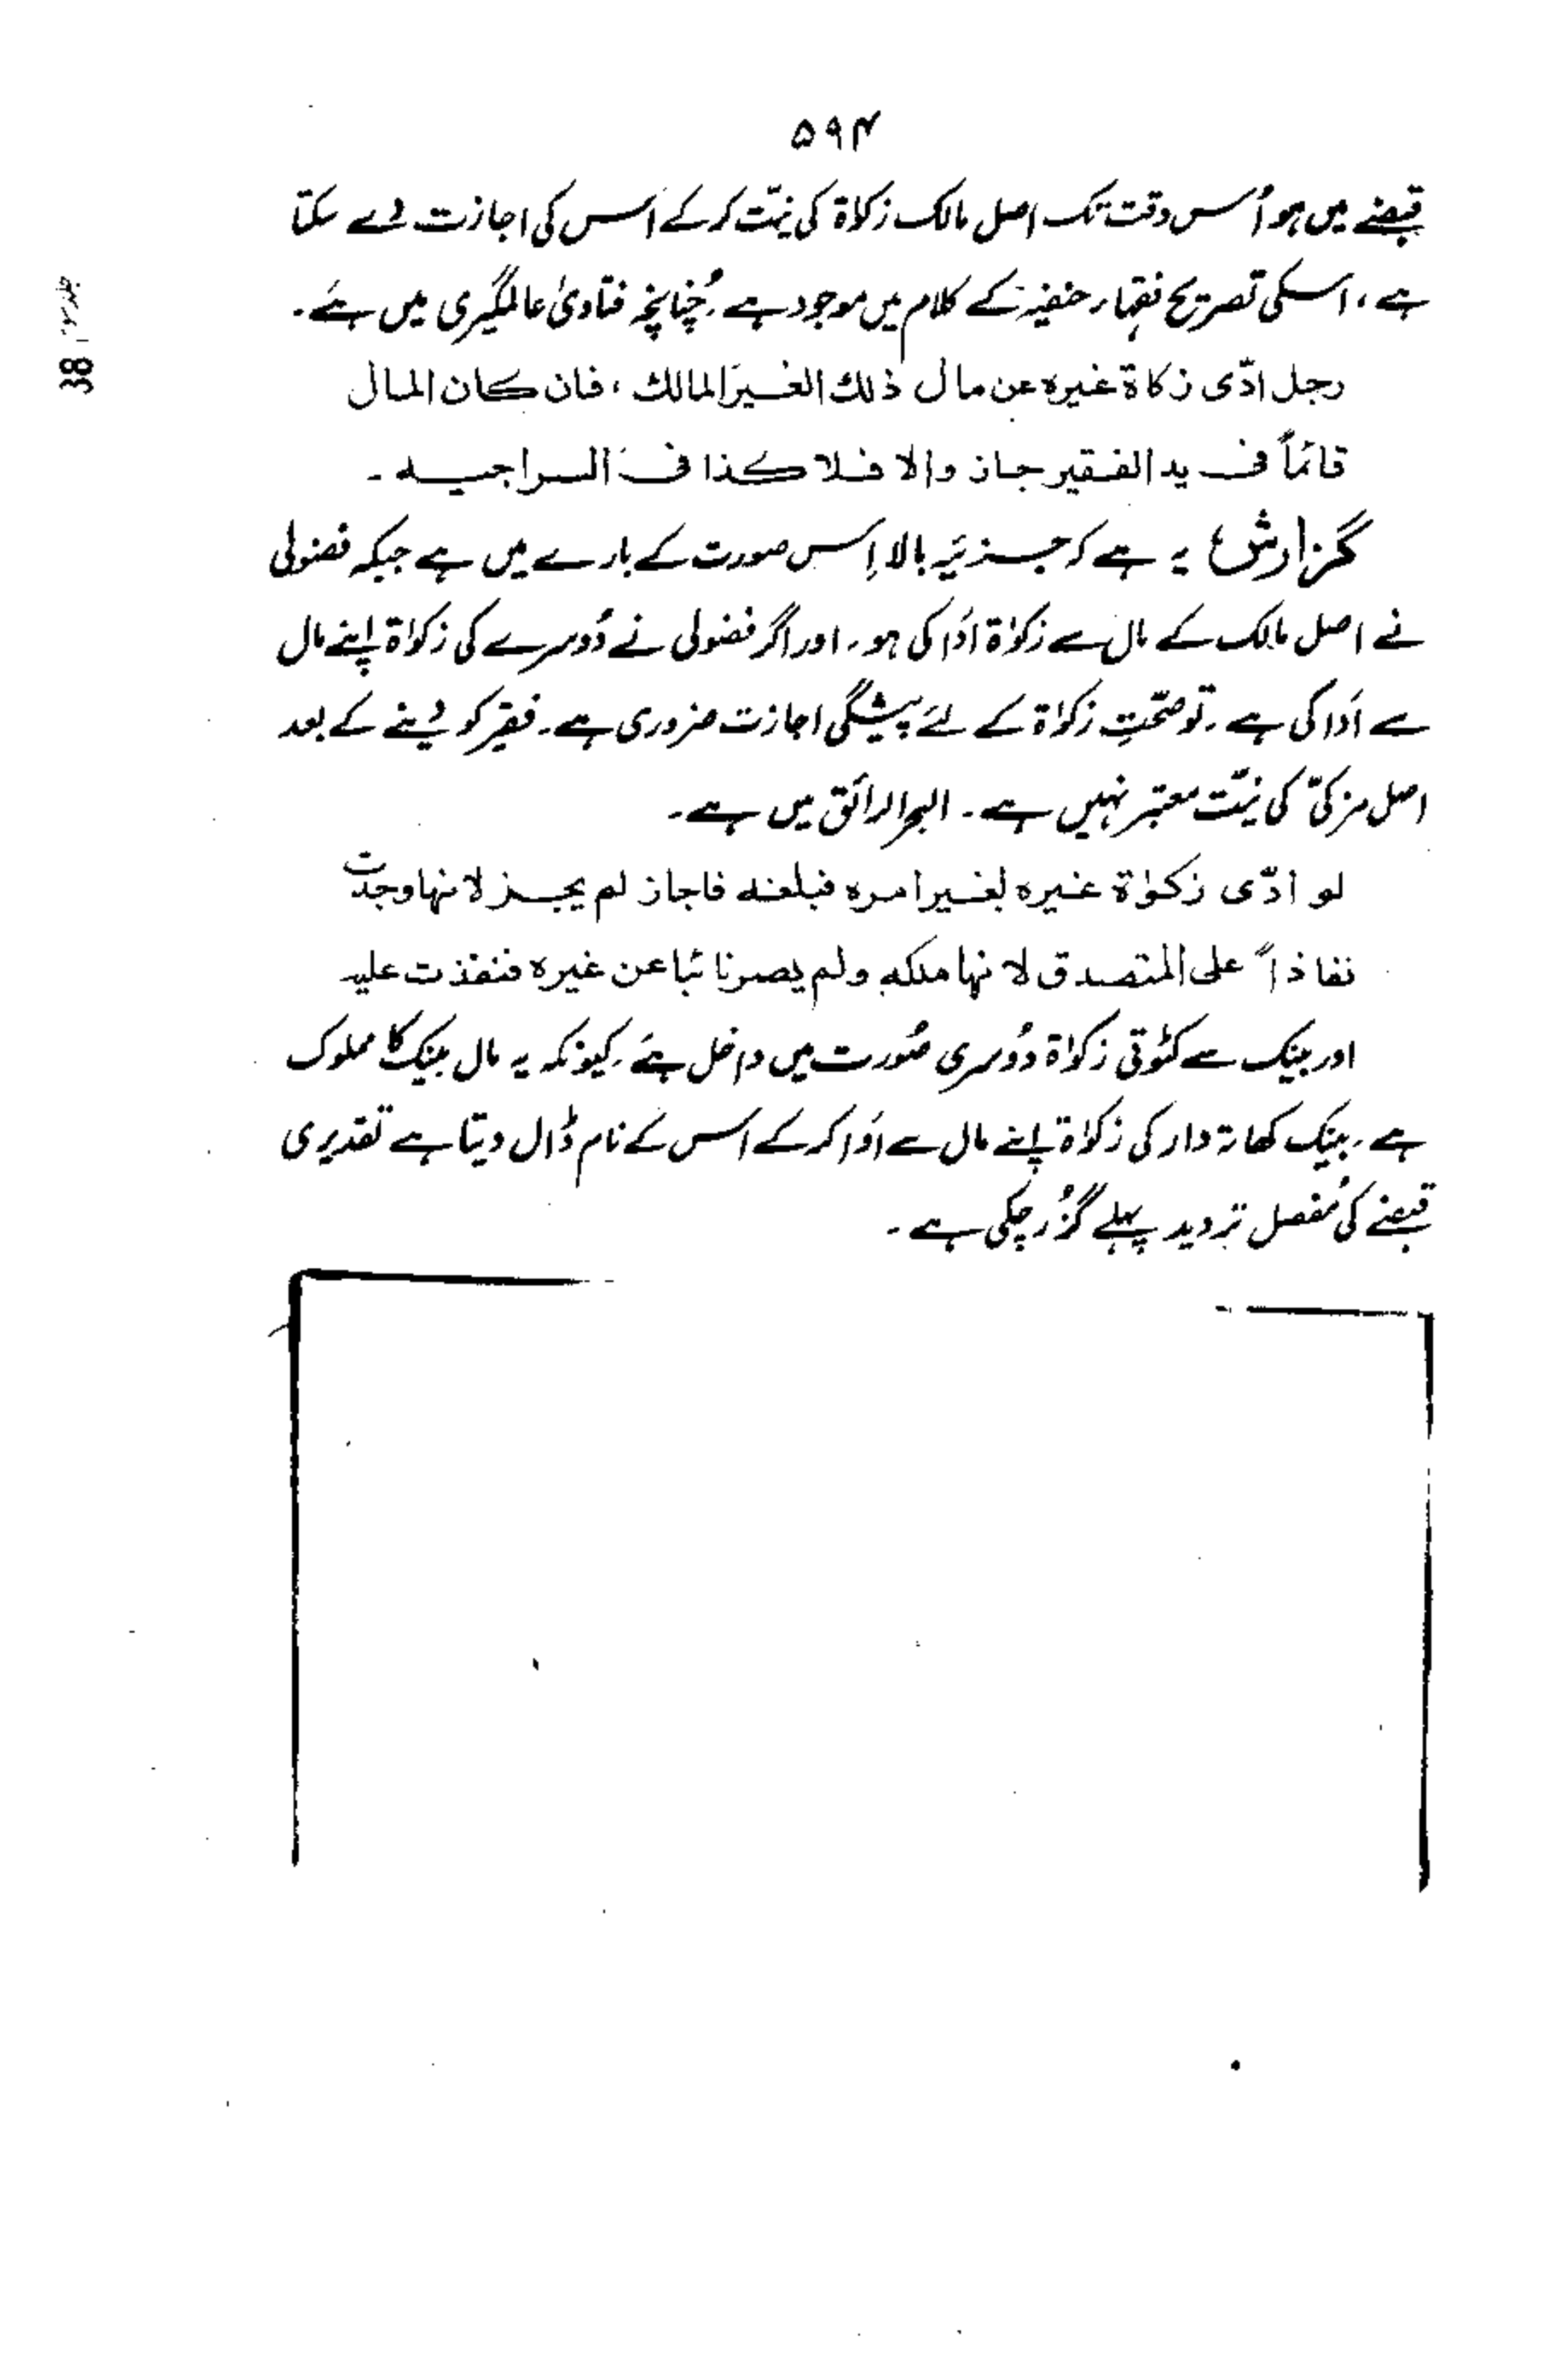 ۵۹۴
قبضے میں ہو اُس وقت تک اصل مالک زکاۃ کی نیّت کرکے اُس کی اجازت دے سکتا
ہے، اسکی تصریح فقہاء حنفیہ کے کلام میں موجود ہے، چُنانچہ فتاویٰ عالمگیری میں ہے۔
رجل ادّی زکاۃ غیرہ عن مال ذلك الغیر المالك، فان کان المال
قائماً فی ید الفقیر جاز والا فلا کذا فی السراجیه۔
گزارش یہ ہے کہ جزئیۂ بالا اِس صورت کے بارے میں ہے جبکہ فضولی
نے اصل مالک کے مال سے زکوٰۃ اَدَا کی ہو، اور اگر فضولی نے دُوسرے کی زکوٰۃ اپنے مال
سے اَدَا کی ہے، تو صحّتِ زکوٰۃ کے لئے پیشگی اجازت ضروری ہے۔ فقیر کو دینے کے بعد
اصل مزکیّ کی نیّت معتبر نہیں ہے۔ البحر الرائق میں ہے۔
لو ادّی زکوٰۃ غیرہ بغیر امرہ فبلغه فاجاز لم یجز لانها وجدت
نفاذاً علی المتصدق لانها ملکه ولم یصر نائبا عن غیرہ فنفذت علیه
اور بینک سے کٹوتی زکوٰۃ دُوسری صُورت میں داخل ہے، کیونکہ یہ مال بینک کا مملوک
ہے، بینک کھاتہ دار کی زکوٰۃ اپنے مال سے اَدَا کرکے اُس کے نام ڈال دیتا ہے تقدیری
قبضے کی مُفصل تردید پہلے گزُر چکی ہے۔
38